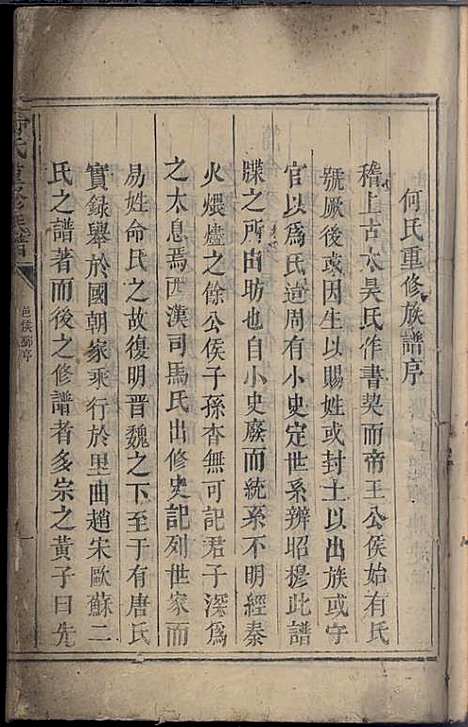 何氏重修族譜序
稽上古太昊氏作書契而帝王公侯始有氏
號厥後或因生以賜姓或封土以出族或守
官以爲氏迨周有小史定世系辨昭穆此譜
牒之所由昉也自小史廢而統系不明經秦
火煨燼之餘公侯子孫杳無可記君子深爲
之太息焉西漢司馬氏出修史記列世家而
易姓命氏之故復明晋魏之下至于有唐氏
實録舉於國朝家乘行於里曲趙宋歐蘇二
氏之譜著而後之修譜者多宗之黃子曰先
何氏重修族譜
序